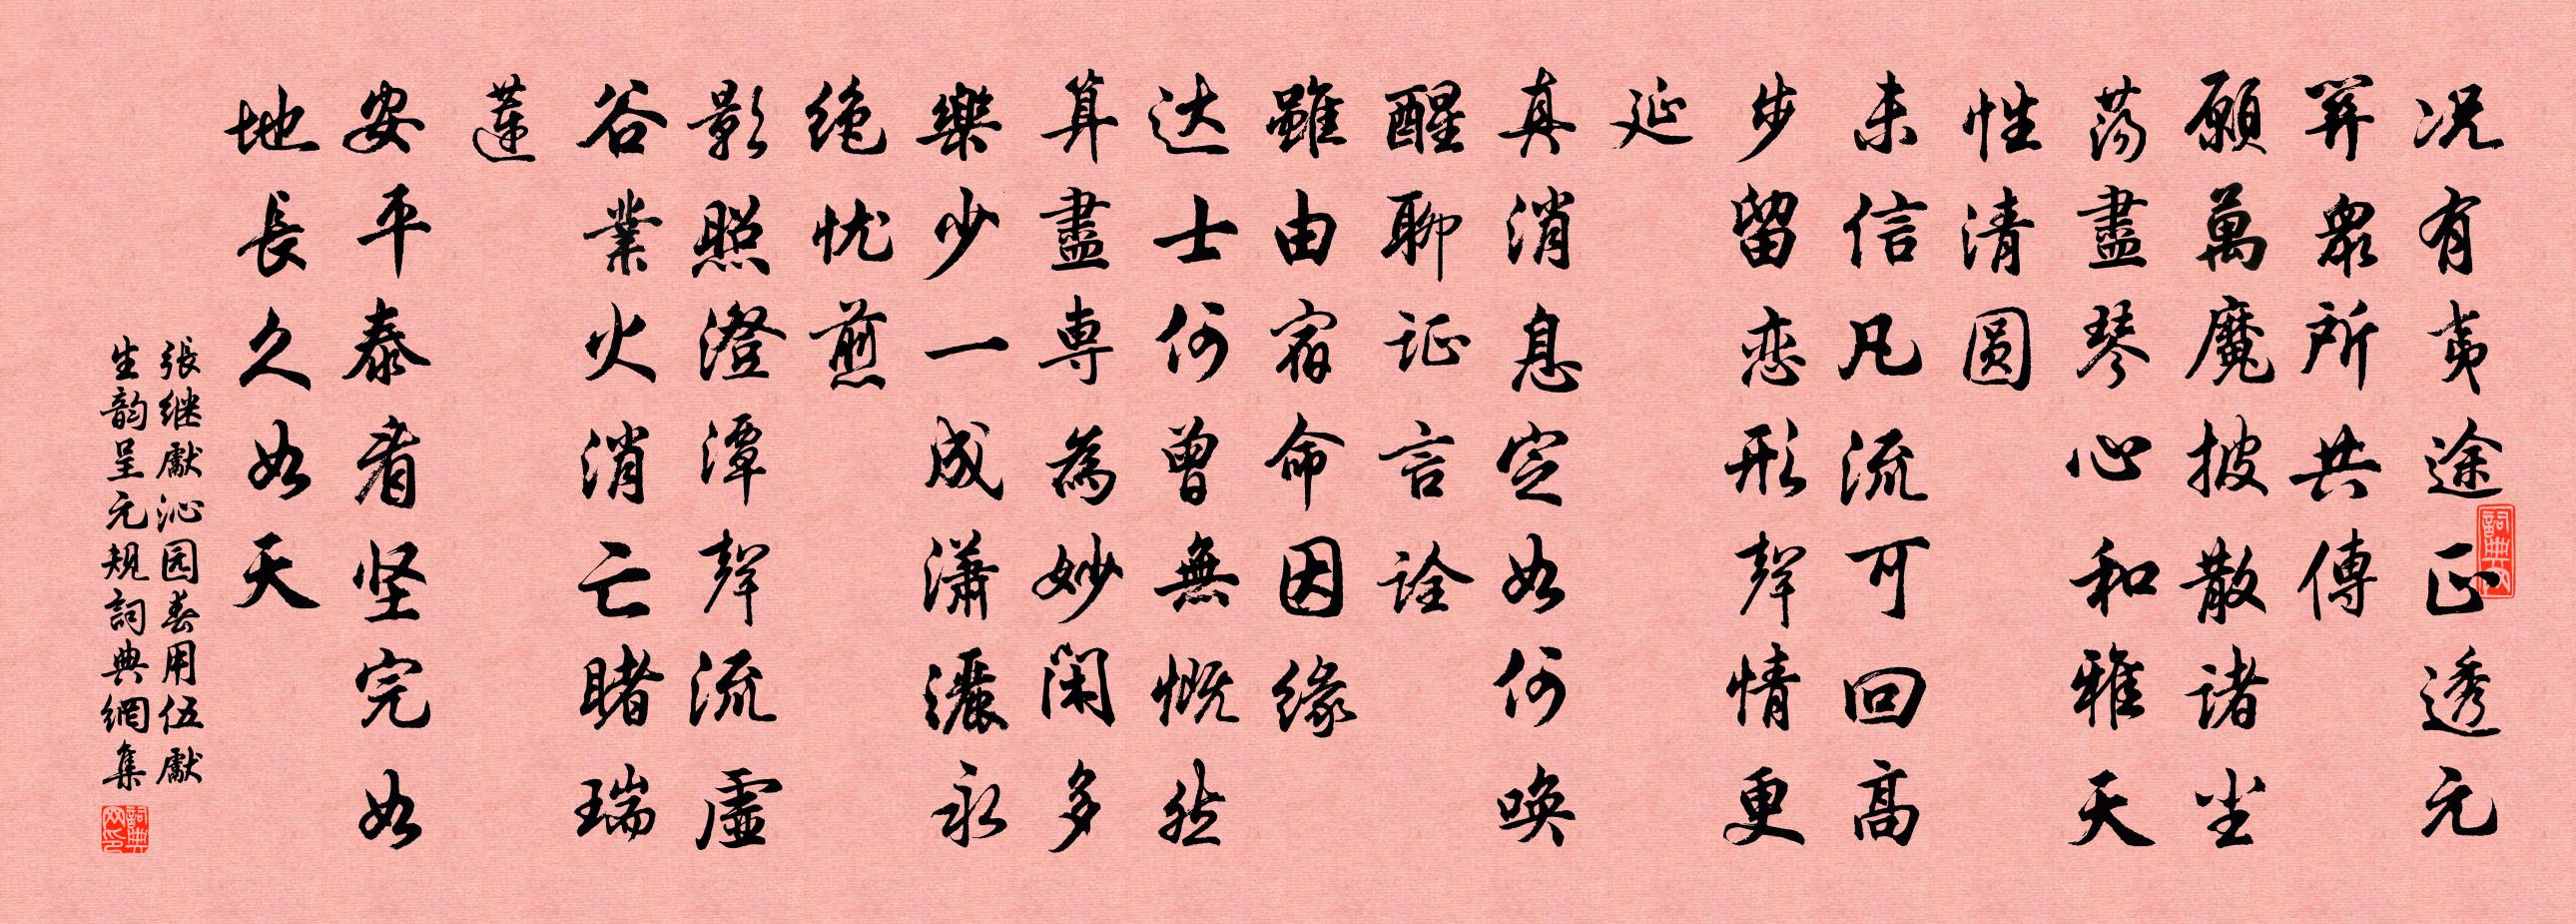 况有夷途正透元
關衆所共傳
願萬魔披散諸尘
荡盡琴心和雅天
性清圆
未信凡流可回高
步留恋形聲情更
延
真消息定如何唤
醒聊证言诠
雖由宿命因缘
达士何曾無慨然
算盡專為妙閑多
樂少一成潇灑永
绝忧煎
影照澄潭聲流虚
谷業火消亡睹瑞
蓮
安平泰看坚完如
地長久如天
張继獻沁园春用伍獻
生韵呈元规詞典網集
詞典
詞典網印